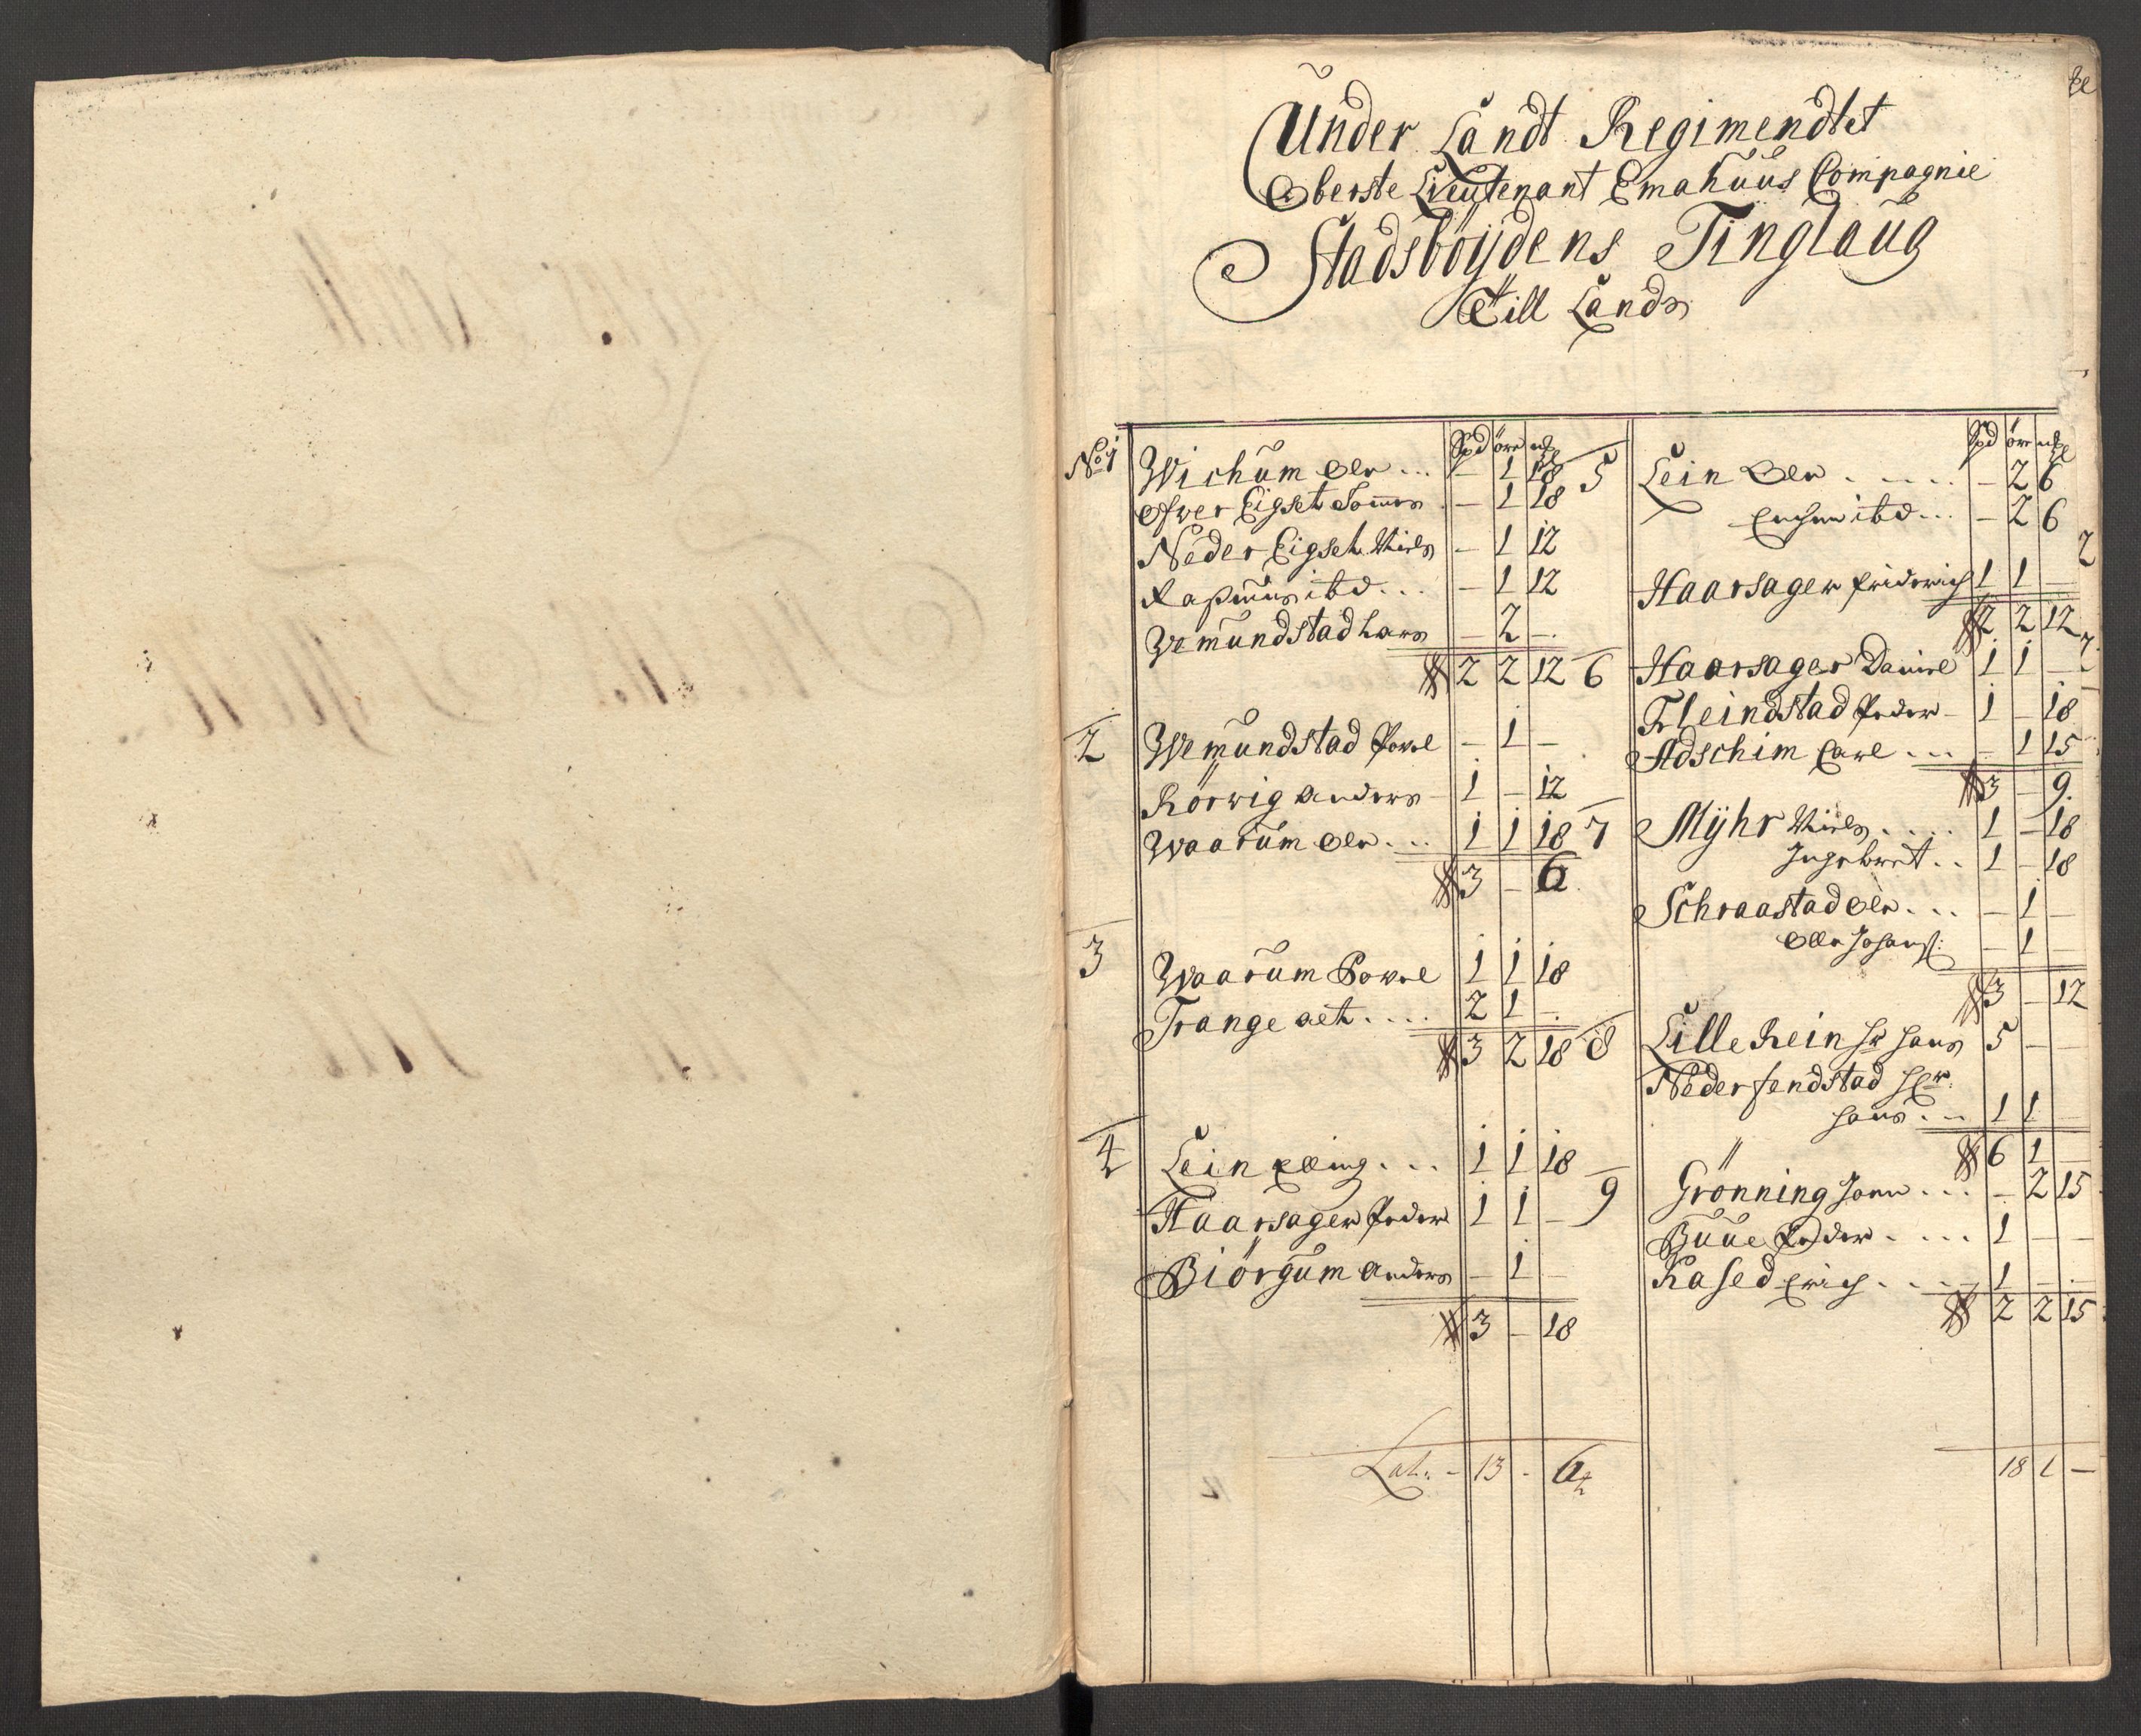 Under Landt Regimendtet
Oberste Lieutenant Emahuus Compagnie
Stadsböÿdens Tinglaug
Till Lands
No 1
Spd öre mk
Wichum Ole ... - 1 18
Ofwer Eigset - 1 18
Neder Eigset Niels - 1 12
Rasmus ibd ... - 1 12
Wemundstad Lars - 2 -
2 2 12
2
Wemundstad Powel - 1 -
Rörwig Anders - 1 - 12
Waarum Ole ... 1 1 18
3 - 6
3
Waarum Powel 1 1 18
Trange aet .... 2 1 -
3 2 18
4
Lein Elling ... 1 1 18
Haarsager Peder 1 1 -
Biörgum Anders - 1 -
3 - 18
Lat: - 13 - 6
Spd öre
5
Lein Ole ..... - 2 6
ibd ... - 2 6
Haarsager Friderich 1 1 -
2 2 12
6
Haarsager Daniel 1 1 -
Fleindstad Peder - 1 - 18
Adschim Carl ... - 1 15
3 - 9
7
Mÿhr Niels .... 1 - 18
Ingebret .. 1 - 18
Schraastad Ole ... - 1 -
Olle Johans: - 1 -
3 - 12
8
Lille Rein Sr Hans 5 - -
Neder fendstad
Hans ... 1 1 -
6 1 -
9
Grönning John ... - 2 15
Buue Peder .... 1 - -
Rased Erich .... 1 - -
2 2 15
18 1 -